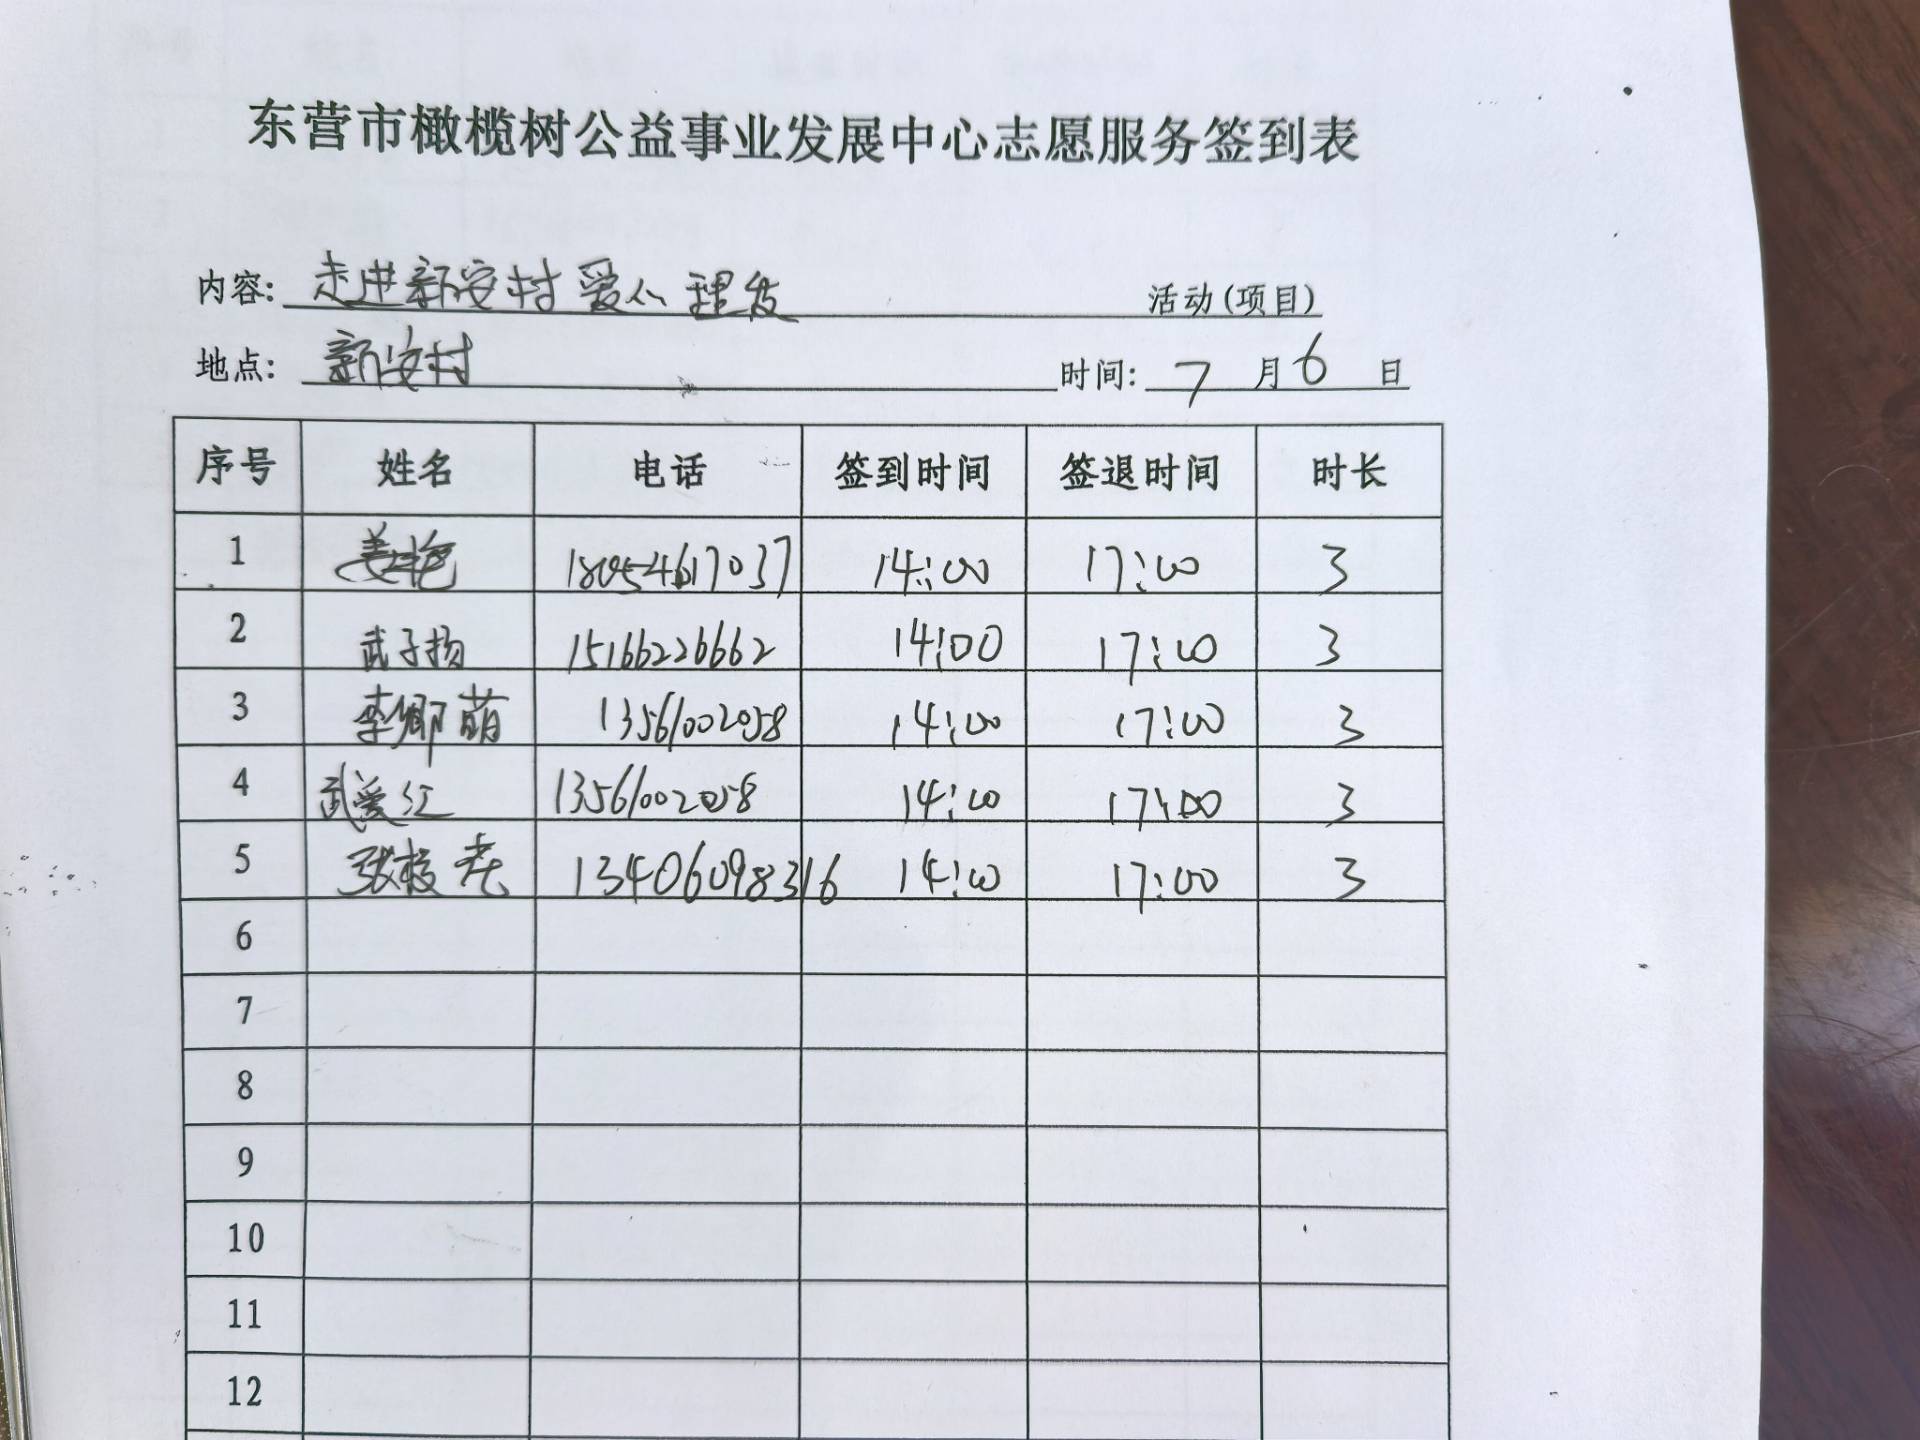 东营市橄榄树公益事业发展中心志愿服务签到表
内容: 走进新安村爱心理发 活动(项目)
地点: 新安村 时间: 7 月 6 日
序号 姓名 电话 签到时间 签退时间 时长
1 姜艳 18054617037 14:00 17:00 3
2 武子扬 15166226662 14:00 17:00 3
3 李卿萌 13561002058 14:00 17:00 3
4 武爱红 13561002058 14:00 17:00 3
5 张 13406098316 14:00 17:00 3
6
7
8
9
10
11
12